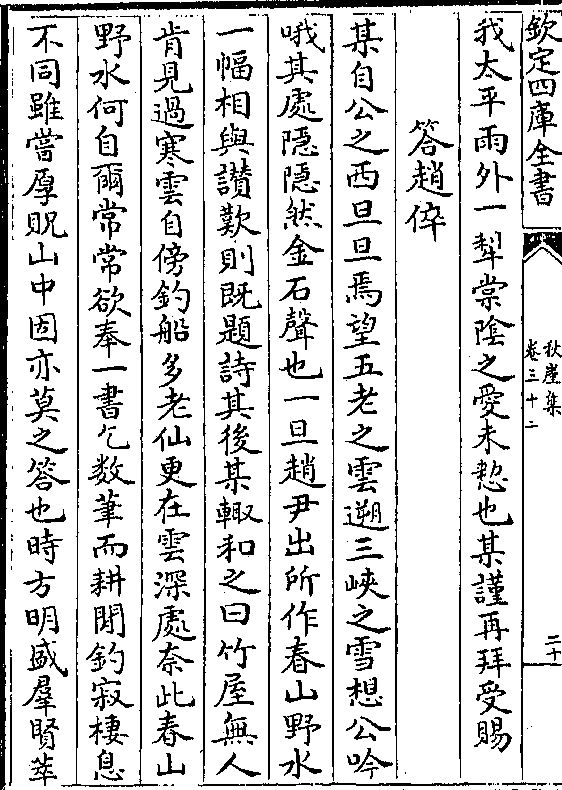 欽定四庫全書
秋崖集
卷三十二
二十
我太平雨外一犁棠陰之愛未愁也某謹再拜受賜
答趙倅
某自公之西旦旦焉望五老之雲遡三峽之雪想公吟
哦其處隠隠然金石聲也一旦趙尹出所作春山野水
一幅相與讃歎則既題詩其後某輙和之曰竹屋無人
肯見過寒雲自傍釣船多老仙更在雲深處奈此春山
野水何自爾常常欲奉一書乞数筆而耕閒釣寂棲息
不同雖嘗辱貺山中固亦莫之答也時方明盛羣賢萃